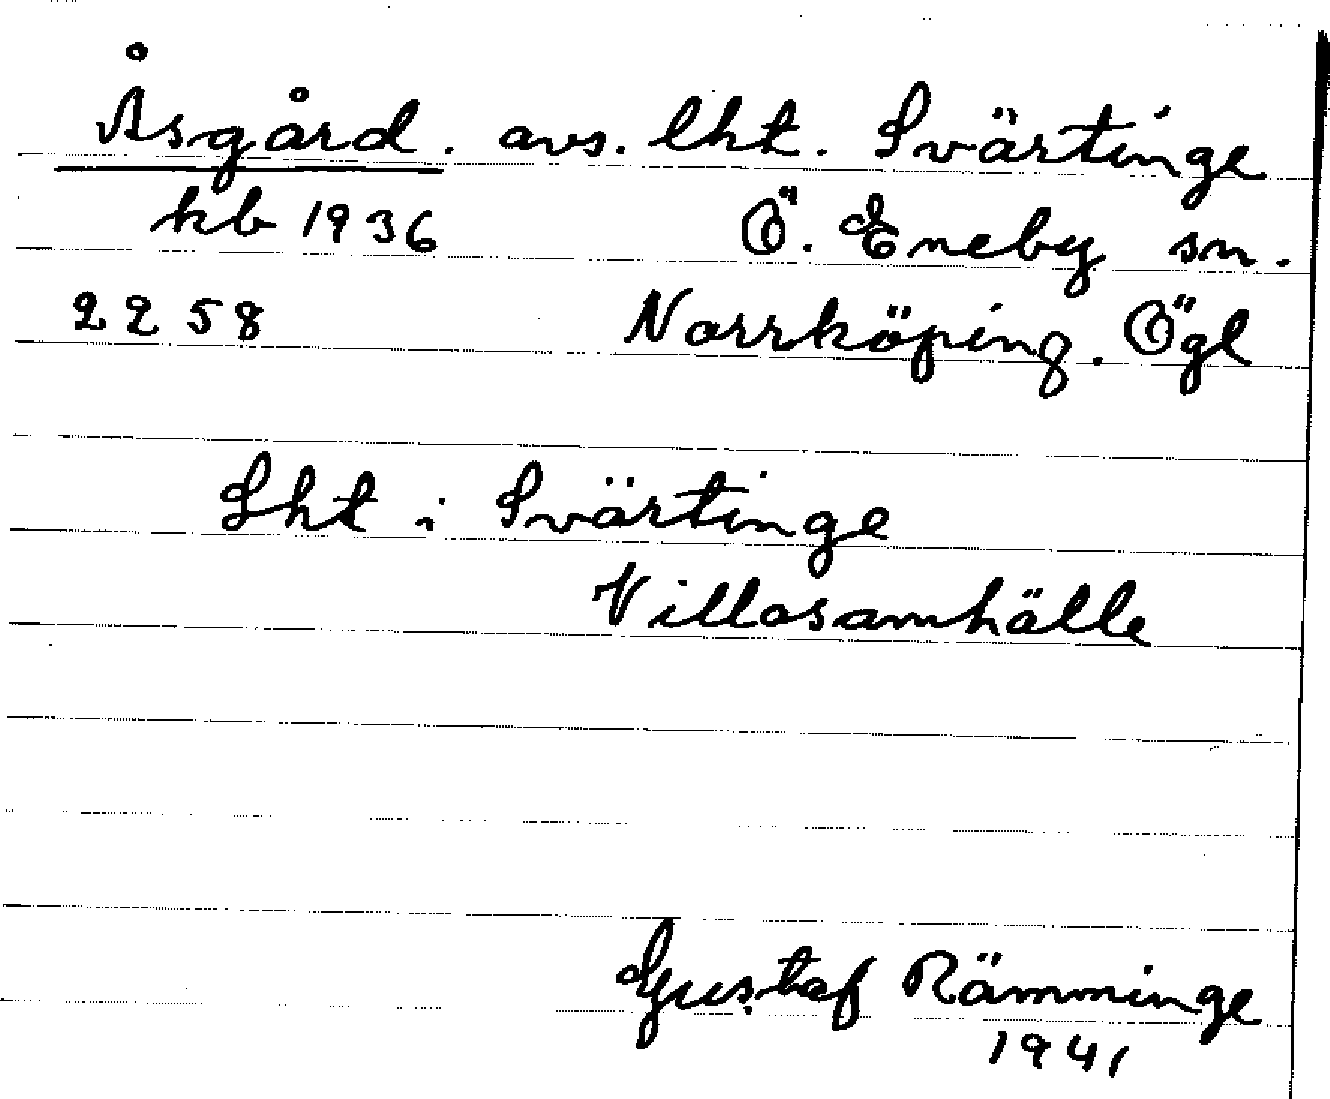 Åsgård. avs. lht. Svärtinge
kb 1936 Ö. Eneby sn.
2258 Norrköping. Ögl
Lht i Svärtinge
Villasamhälle
Gustaf Rämminge
1941